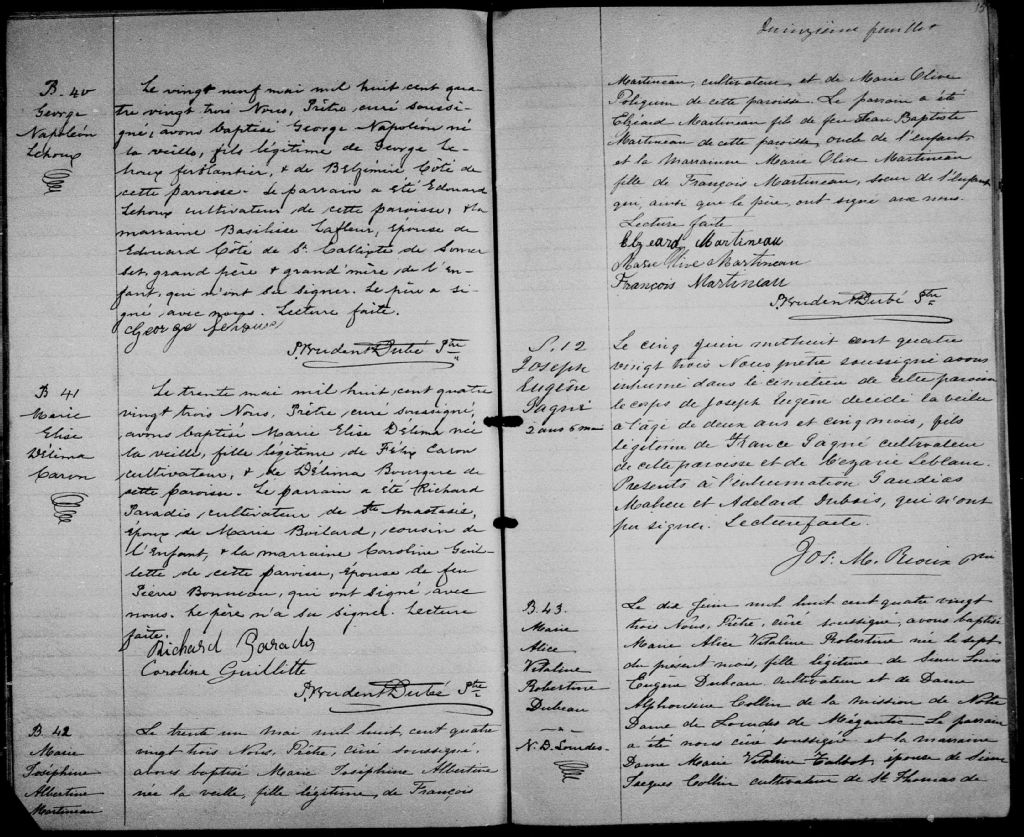 B. 40
George
Napoléon
Lehoux
Le vingt neuf mai mil huit cent qua
tre vingt trois Nous, Prêtre, curé soussi
gné, avons baptisé George Napoléon né
la veille, fils légitime de George Le-
houx ferblantier, & de Belzémire Côté de
cette paroisse. Le parrain a été Edouard
Lehoux cultivateur de cette paroisse, & la
marraine Basilise Lafleur, épouse de
Edouard Côté de St. Calixte de Somer
set, grand père & grand'mère de l'En-
fant, qui n'ont su signer. Le père a si-
gné avec nous. Lecture faite.
George Lehoux
P. Prudent Dubé Ptre
B 41
Marie
Elise
Délima
Caron
Le trente mai mil huit cent quatre
vingt trois Nous, Prêtre, curé soussigné,
avons baptisé Marie Elise Délima née
la veille, fille légitime de Félix Caron
cultivateur, & de Délima Bourque de
cette paroisse. Le parrain a été Richard
Paradis, cultivateur de Ste Anastasie,
époux de Marie Boilard, cousin de
l'Enfant, & la marraine Caroline Guil-
lette de cette paroisse, épouse de feu
Pierre Bonneau, qui ont signé avec
nous. Le père n'a su signer. Lecture
faite.
Richard Paradis
Caroline Guillitte
P. Prudent Dubé Ptre
B 42
Marie
Joséphine
Albertine
Martineau
Le trente un mai mil huit cent quatre
vingt trois Nous, Prêtre, curé soussigné,
avons baptisé Marie Joséphine Albertine
née la veille, fille légitime, de François
15
Quinzième feuillet
Martineau, cultivateur et de Marie Olive
de cette paroisse. Le parrain a été
Elzéard Martineau fils de feu Jean Baptiste
Martineau de cette paroisse, oncle de l'enfant
et la Marraine Marie Olive Martineau
fille de François Martineau, soeur de l'Enfant
qui, ainsi que le père, ont signé avec nous.
Lecture faite
Elzeard Martineau
Marie Olive Martineau
François Martineau
P. Prudent Dubé Ptre
S. 12
Joseph
Eugène
Gagné
2 ans 5 m
Le cinq juin mil huit cent quatre
vingt trois Nous prêtre soussigné avons
inhumé dans le cimetière de cette paroisse
le corps de Joseph Eugène décédé la veille
à l'âge de deux ans et cinq mois, fils
légitime de France Gagné cultivateur
de cette paroisse et de Cezarie Leblanc.
Presents à l'inhumation Gaudias
Maheu et Adelard Dubois, qui n'ont
pu signer. Lecture faite.
Jos. M. Rioux ptre
B. 43.
Marie
Alice
Vitaline
Robertine
Dubeau
N. D. Lourdes.
Le dix Juin mil huit cent quatre vingt
trois Nous, Prêtre, curé soussigné, avons baptisé
Marie Alice Vitaline Robertine née le sept
du présent mois, fille légitime de Sieur Louis
Eugène Dubeau cultivateur et de Dame
Alphonsine Collin de la mission de Notre
Dame de Lourdes de Mégantic. Le parrain
a été nous curé soussigné et la marraine
Dame Marie Vitaline Talbot, épouse de Sieur
Jacques Collin cultivateur de St Thomas de